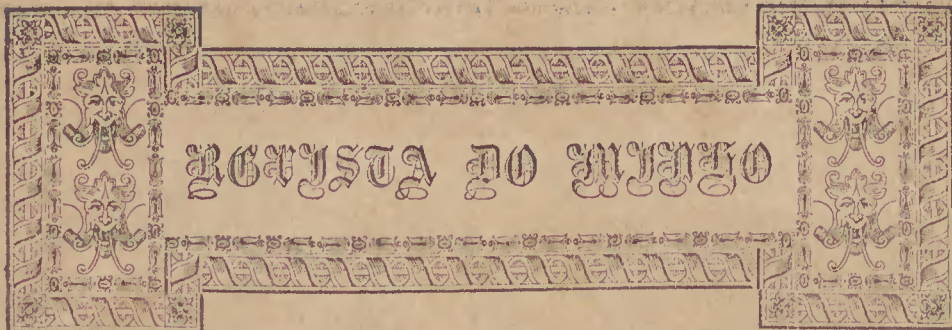 REVISTA DO MINHO